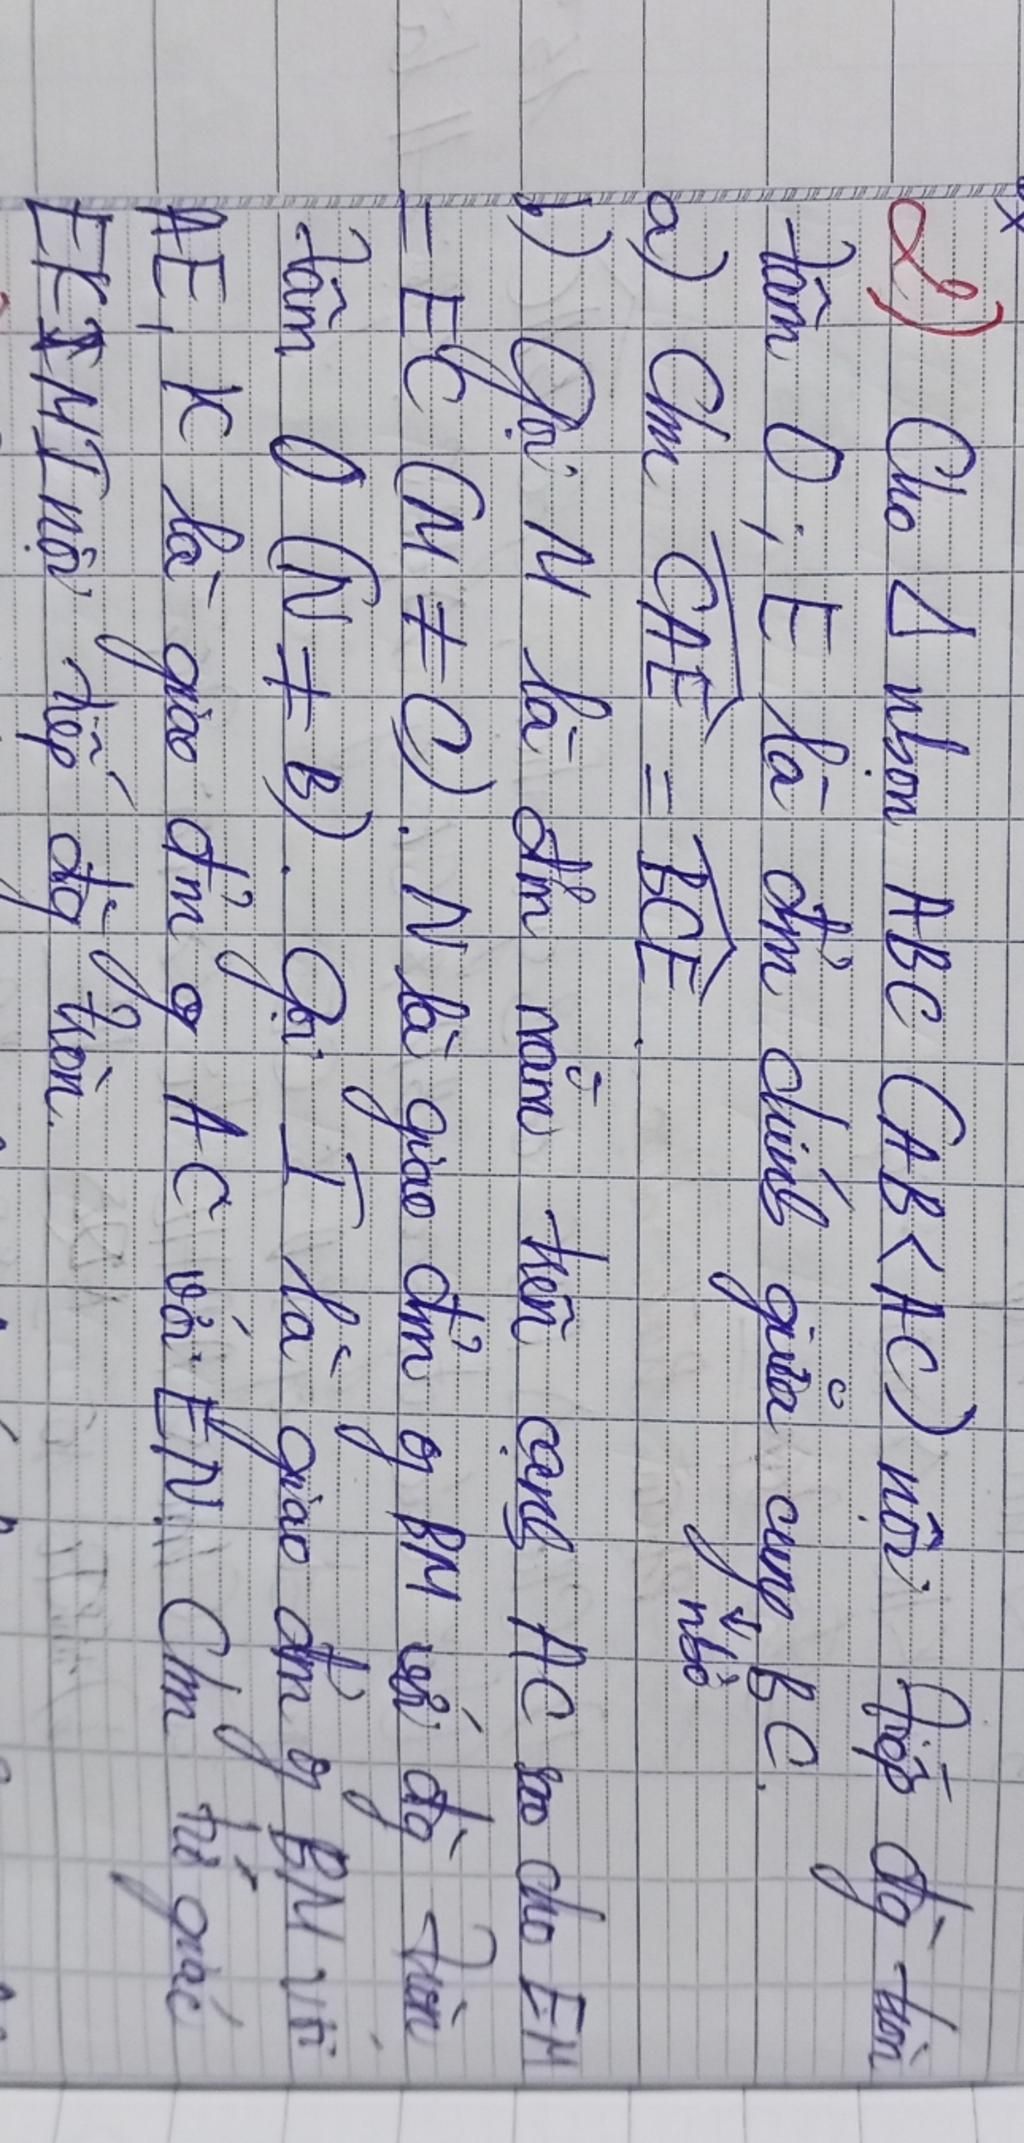 2) Cho Δ nhọn ABC (AB < AC) nội tiếp đg tròn
tâm O, E là đm chính giữa cung BC.
nhỏ
a) Cm CAE = BCE.
b) Gọi M là đm nằm trên cạnh AC sao cho EM
= EC (M ≠ C). N là giao đm g BM với đg tròn
tâm O (N ≠ B). Gọi I là giao đm g BM với
AE, K là giao đm g AC với EN. Cm tứ giác
EKMI nội tiếp đg tròn.